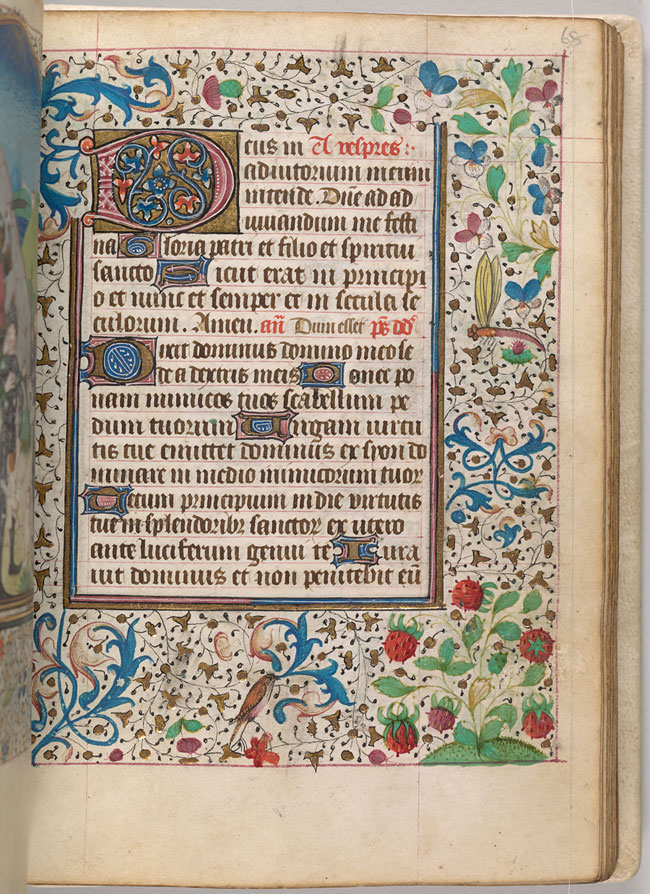 68
Deus in A vespres :
adiutorium meum
intende. Dñe ad ad
iuuandum me festi
na Gloria patri et filio et spiritui
sancto Sicut erat in principi
o et nunc et semper et in secula se
culorum. Amen. añ Dum esset ps dd
Dixit dominus domino meo se
de a dextris meis Donec po
nam inimicos tuos scabellum pe
dum tuorum Uirgam uirtu
tis tue emittet dominus ex syon do
minare in medio inimicorum tuor
Tecum principium in die virtutis
tue in splendoribꝫ sanctor ex utero
ante luciferum genui te Iura
uit dominus et non penitebit eū